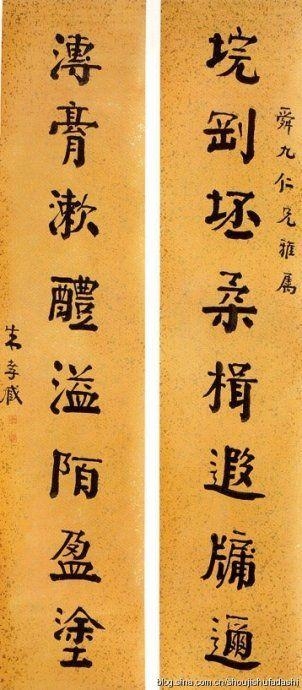 舜九仁兄雅属
垸剛坯柔楫遐牖邇
漙膏漱醴溢陌盈塗
朱孝臧
blog.sina.com.cn/shoujishufadashi